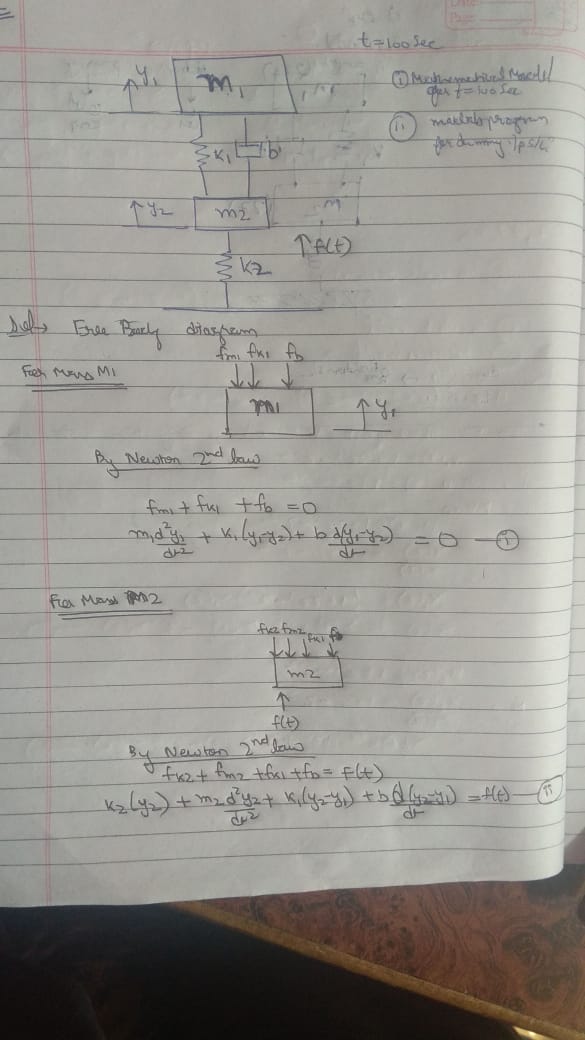 t=100 Sec
y1
M1
(i) Mathematical Model
for t=100 Sec
(ii) matlab program
for dummy i/ps
K1
b
y2
m2
m
↑f(t)
K2
Free Body diagram
fm1 fK1 fb
For Mass M1
m1
y1
By Newton 2nd law
fm1 + fK1 + fb = 0
m1 d²y1/dt² + K1(y1-y2) + b d(y1-y2)/dt = 0 —(i)
For Mass M2
fK2 fm2 fK1 fb
m2
f(t)
By Newton 2nd law
fK2 + fm2 + fK1 + fb = f(t)
K2(y2) + m2 d²y2/dt² + K1(y2-y1) + b d(y2-y1)/dt = f(t) —(ii)